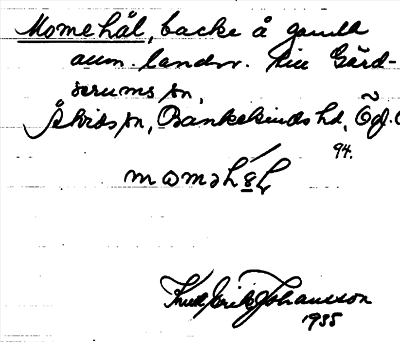 Momehål, backe å gamla
allm. landsv. till Gärd-
serums sn,
Åtvids sn, Bankekinds hd, Ög.
94.
Knut Erik Johansson
1935